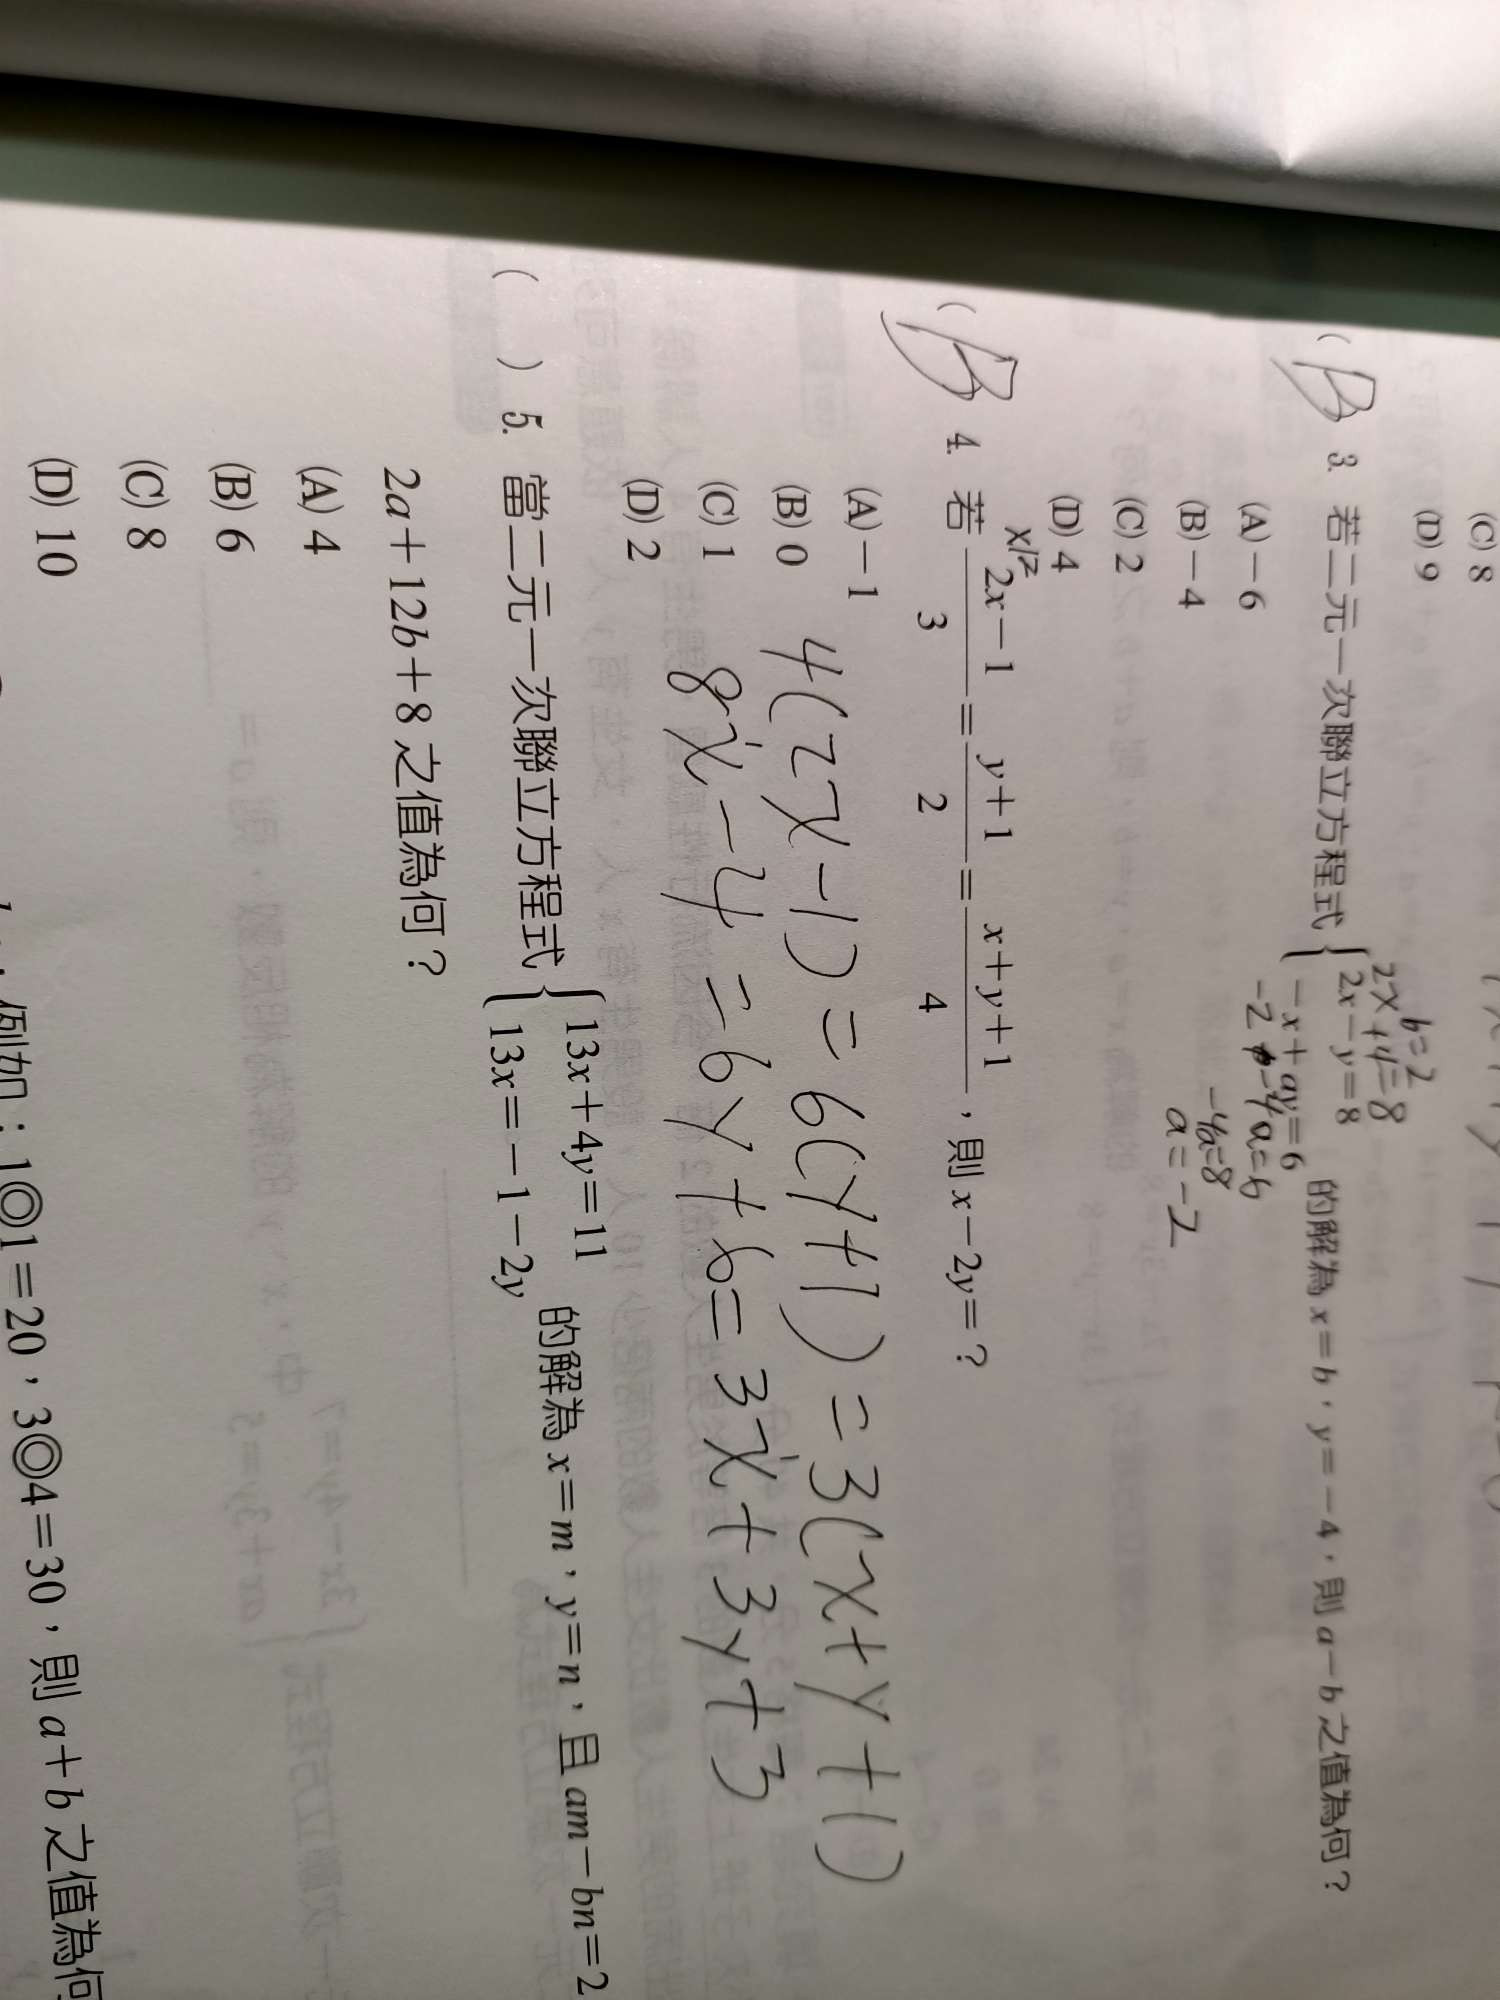 (C) 8
(D) 9
(B) 3. 若二元一次聯立方程式 { 2x－y＝8
－x＋ay＝6 的解為 x＝b，y＝－4，則 a－b 之值為何？
b=2
2x+4=8
-2-4a=6
-4a=8
a=-2
(A)－6
(B)－4
(C) 2
(D) 4
x12
(B) 4. 若 2x－1/3 ＝ y＋1/2 ＝ x＋y＋1/4 ，則 x－2y＝？
(A)－1
(B) 0
(C) 1
(D) 2
4(2x-1)=6(y+1)=3(x+y+1)
8x-4=6y+6=3x+3y+3
( ) 5. 當二元一次聯立方程式 { 13x＋4y＝11
13x＝－1－2y 的解為 x＝m，y＝n，且 am－bn＝2
2a＋12b＋8 之值為何？
(A) 4
(B) 6
(C) 8
(D) 10
例如：1◎1＝20，3◎4＝30，則 a＋b 之值為何